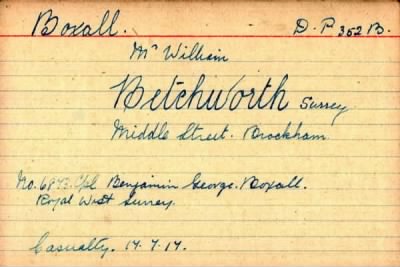 Boxall. D.P 352 B.
Mr William
Betchworth Surrey
Middle Street. Brockham
No. Cpl Benjamin George. Boxall.
Royal West Surrey.
Casualty. 14.7.17.